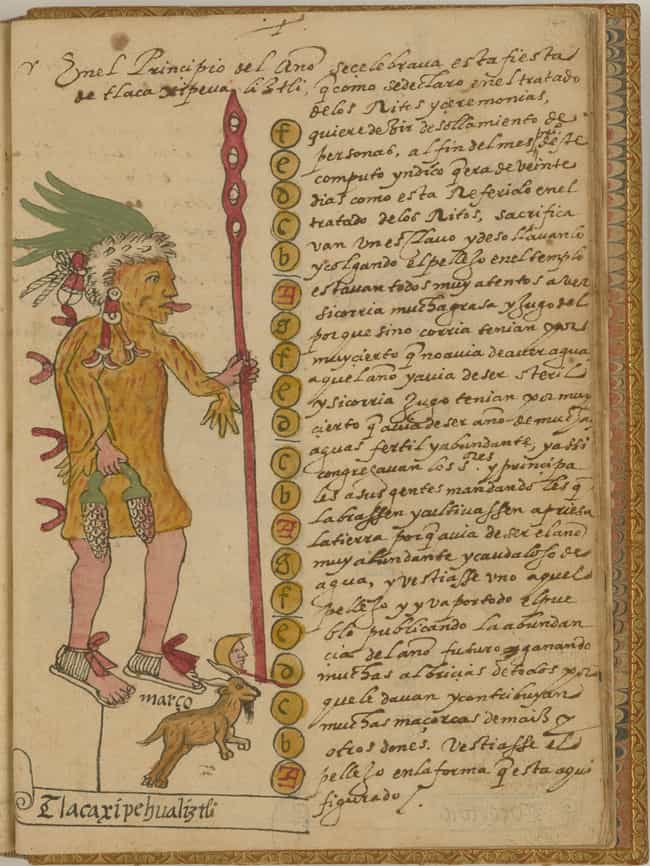 En el Principio del Año se celebrava esta fiesta
de tlaca xipeva liztli, q̃ como se declaro en el tratado
de los Ritos y ceremonias,
quiere dezir desollamiento de
personas, al fin del mes prí.º deste
computo yndico q̃ era de veinte
dias como esta Referido en el
tratado de los Ritos, sacrifica
van un esclavo y desollavanlo
y colgando el pellejo en el templo
estavan todos muy atentos a ver
si corria mucha grasa y Jugo del
porque si no corria tenian por
muy cierto q̃ no avia de aver agua
aquel año y avia de ser steril
y si corria Jugo tenian por muy
cierto q̃ avia de ser año de mucha
aguas fertil y abundante, y assi
congregavan los s.res y principa
les a sus gentes mandando les q̃
labrassen y cultivassen apriesa
la tierra porq̃ avia de ser el año
muy abundante y caudaloso de
agua, y vestiasse uno aquel
pellejo y yva por todo el pue
blo publicando la abundan
cia del año futuro ganando
muchas albricias de todos por
que le davan y contribuyan
muchas maçorcas de maiz y
otros dones. Vestiasse el
pellejo en la forma q̃ esta aqui
figurado
f
e
d
c
b
A
g
f
e
d
c
b
A
g
f
e
d
c
b
A
março
Tlacaxipehualiztli